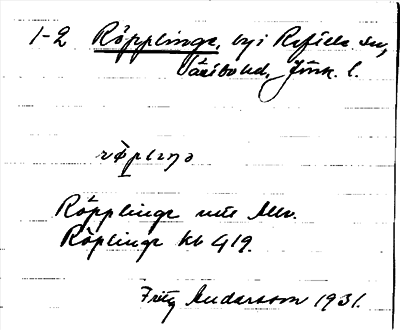 1-2 Röpplinge, by i Reftele sn,
Västbo hd, Jönk. l.
röplıŋə
Röpplinge uta Mbr.
Röplinge kb 919.
Fritz Andersson 1931.